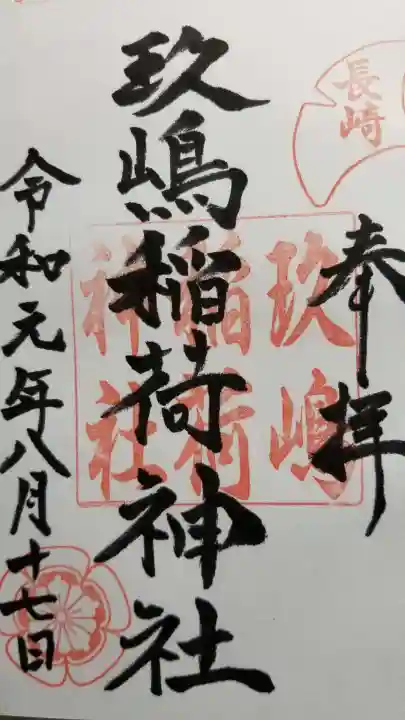 長崎
奉拝
玖嶋稲荷神社
玖嶋
稲荷
神社
令和元年八月十七日